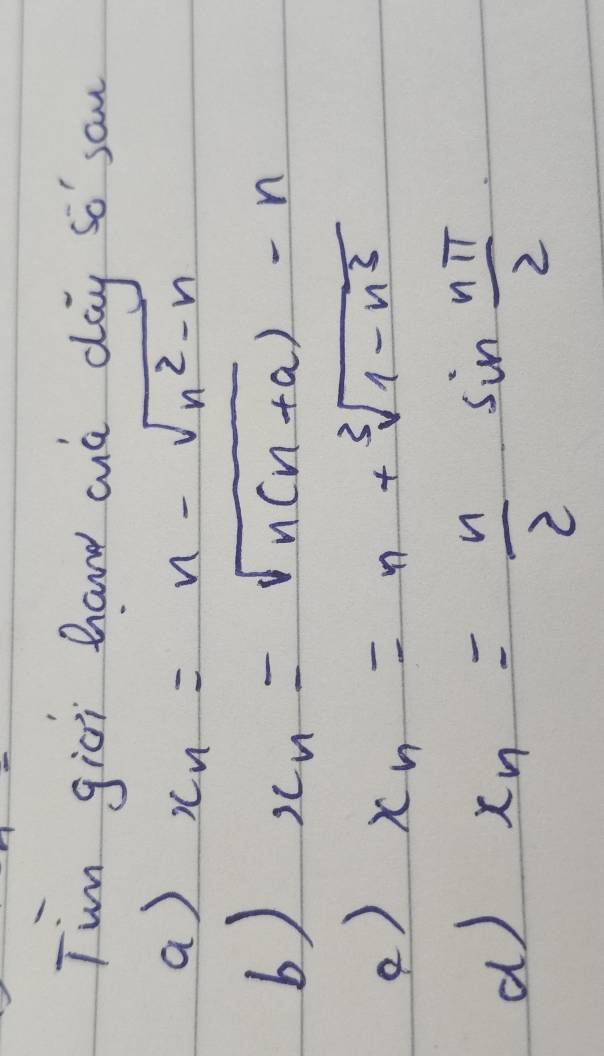 Tìm giới hạn của dãy số sau
a) xₙ = n - √(n² - n)
b) xₙ = √(n(n+a)) - n
c) xₙ = n + ³√(1 - n³)
d) xₙ = n/2 sin nπ/2